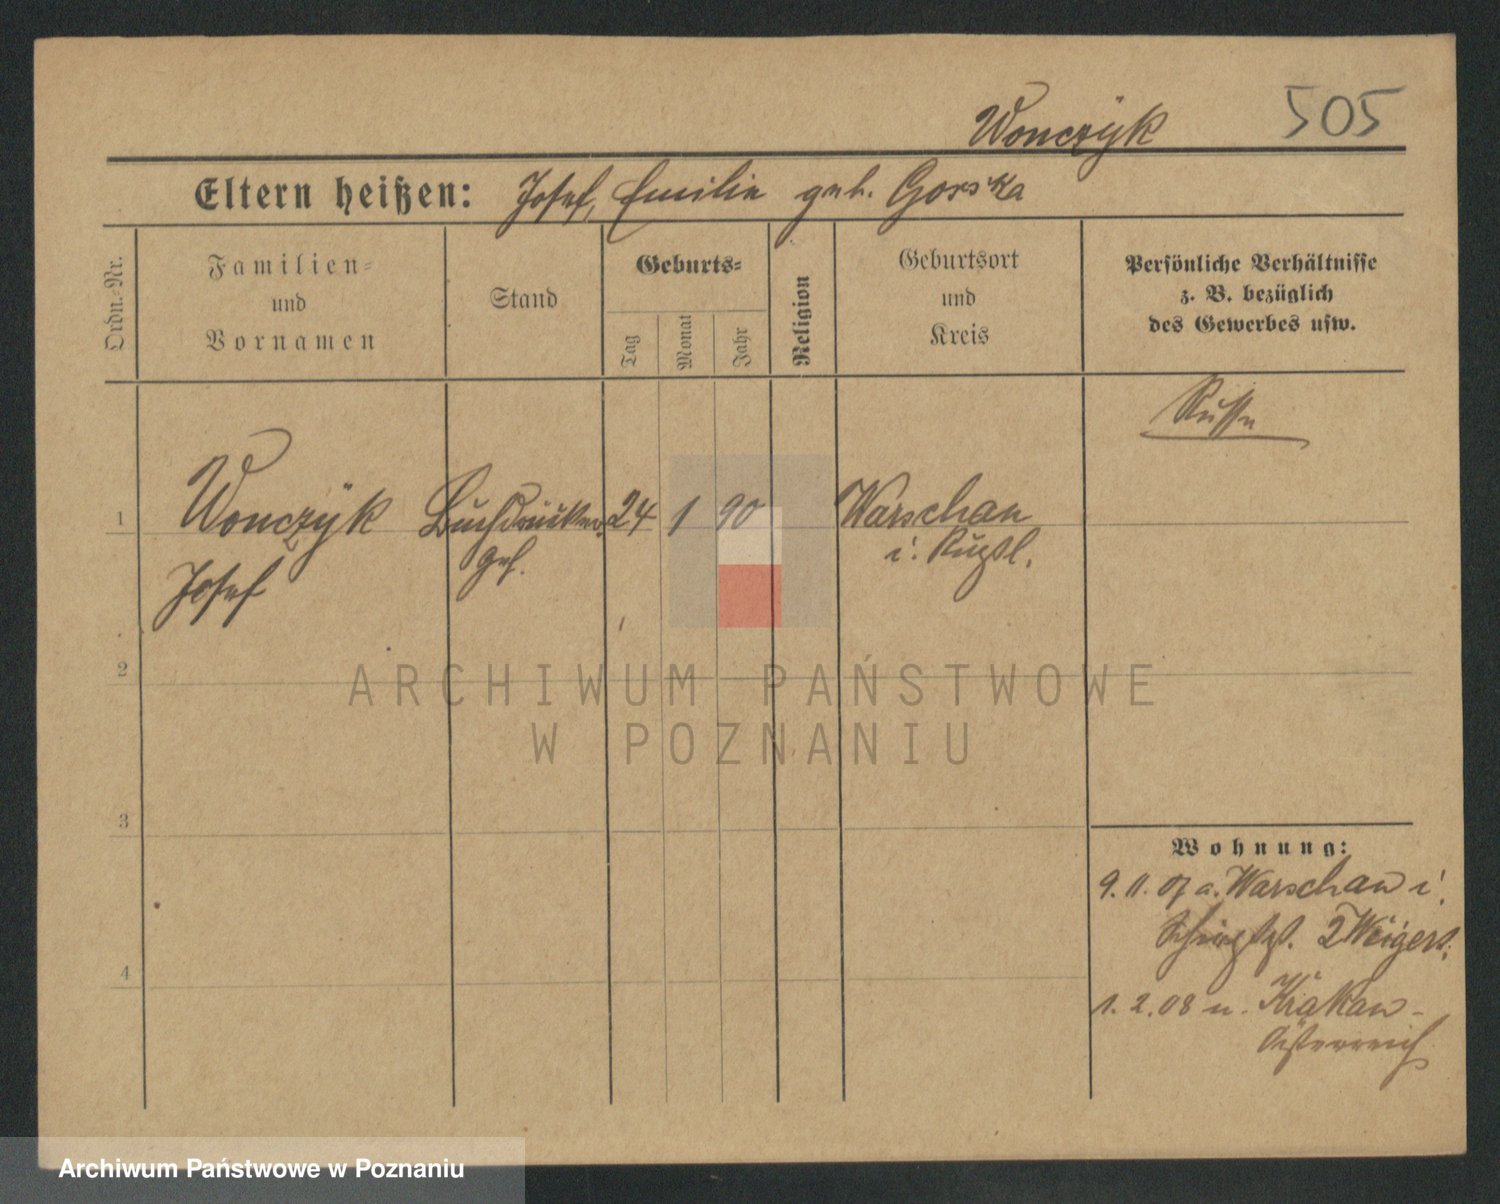 Wonczÿk 505
Eltern heißen: Josef, Emilie geb. Gorska
Ordn.-Nr.
Familien-
und
Vornamen
Stand
Geburts-
Tag
Monat
Jahr
Religion
Geburtsort
und
Kreis
Persönliche Verhältnisse
z. B. bezüglich
des Gewerbes usw.
Russe
1 Wonczÿk Buchdrucker 24 1 90 Warschau
Josef geh. i. Rußl.
2
3
4
Wohnung:
9. 11. 07 a. Warschau i.
2 Weigert
1. 2. 08 n. Krakau-
Österreich
ARCHIWUM PAŃSTWOWE
W POZNANIU
Archiwum Państwowe w Poznaniu